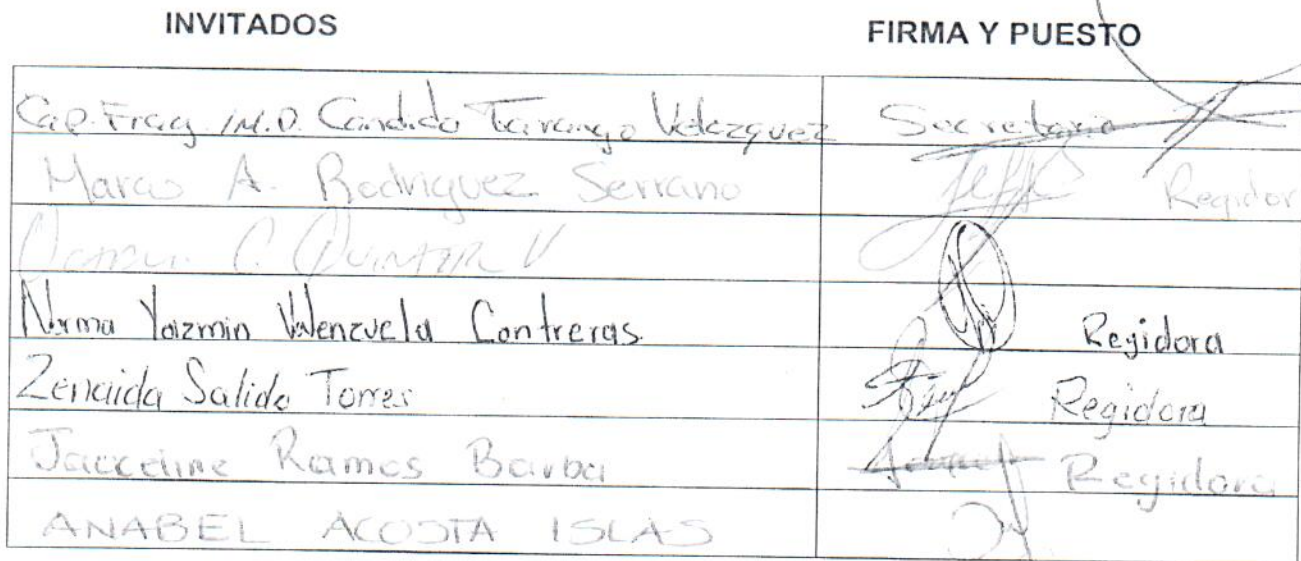 INVITADOS FIRMA Y PUESTO
Cap. Frag. I.M.P. Candido Tarango Velazquez Secretario
Marco A. Rodriguez Serrano Regidor
C.
Norma Yazmin Valenzuela Contreras. Regidora
Zenaida Salido Torres Regidora
Jacceline Ramos Barba Regidora
ANABEL ACOSTA ISLAS